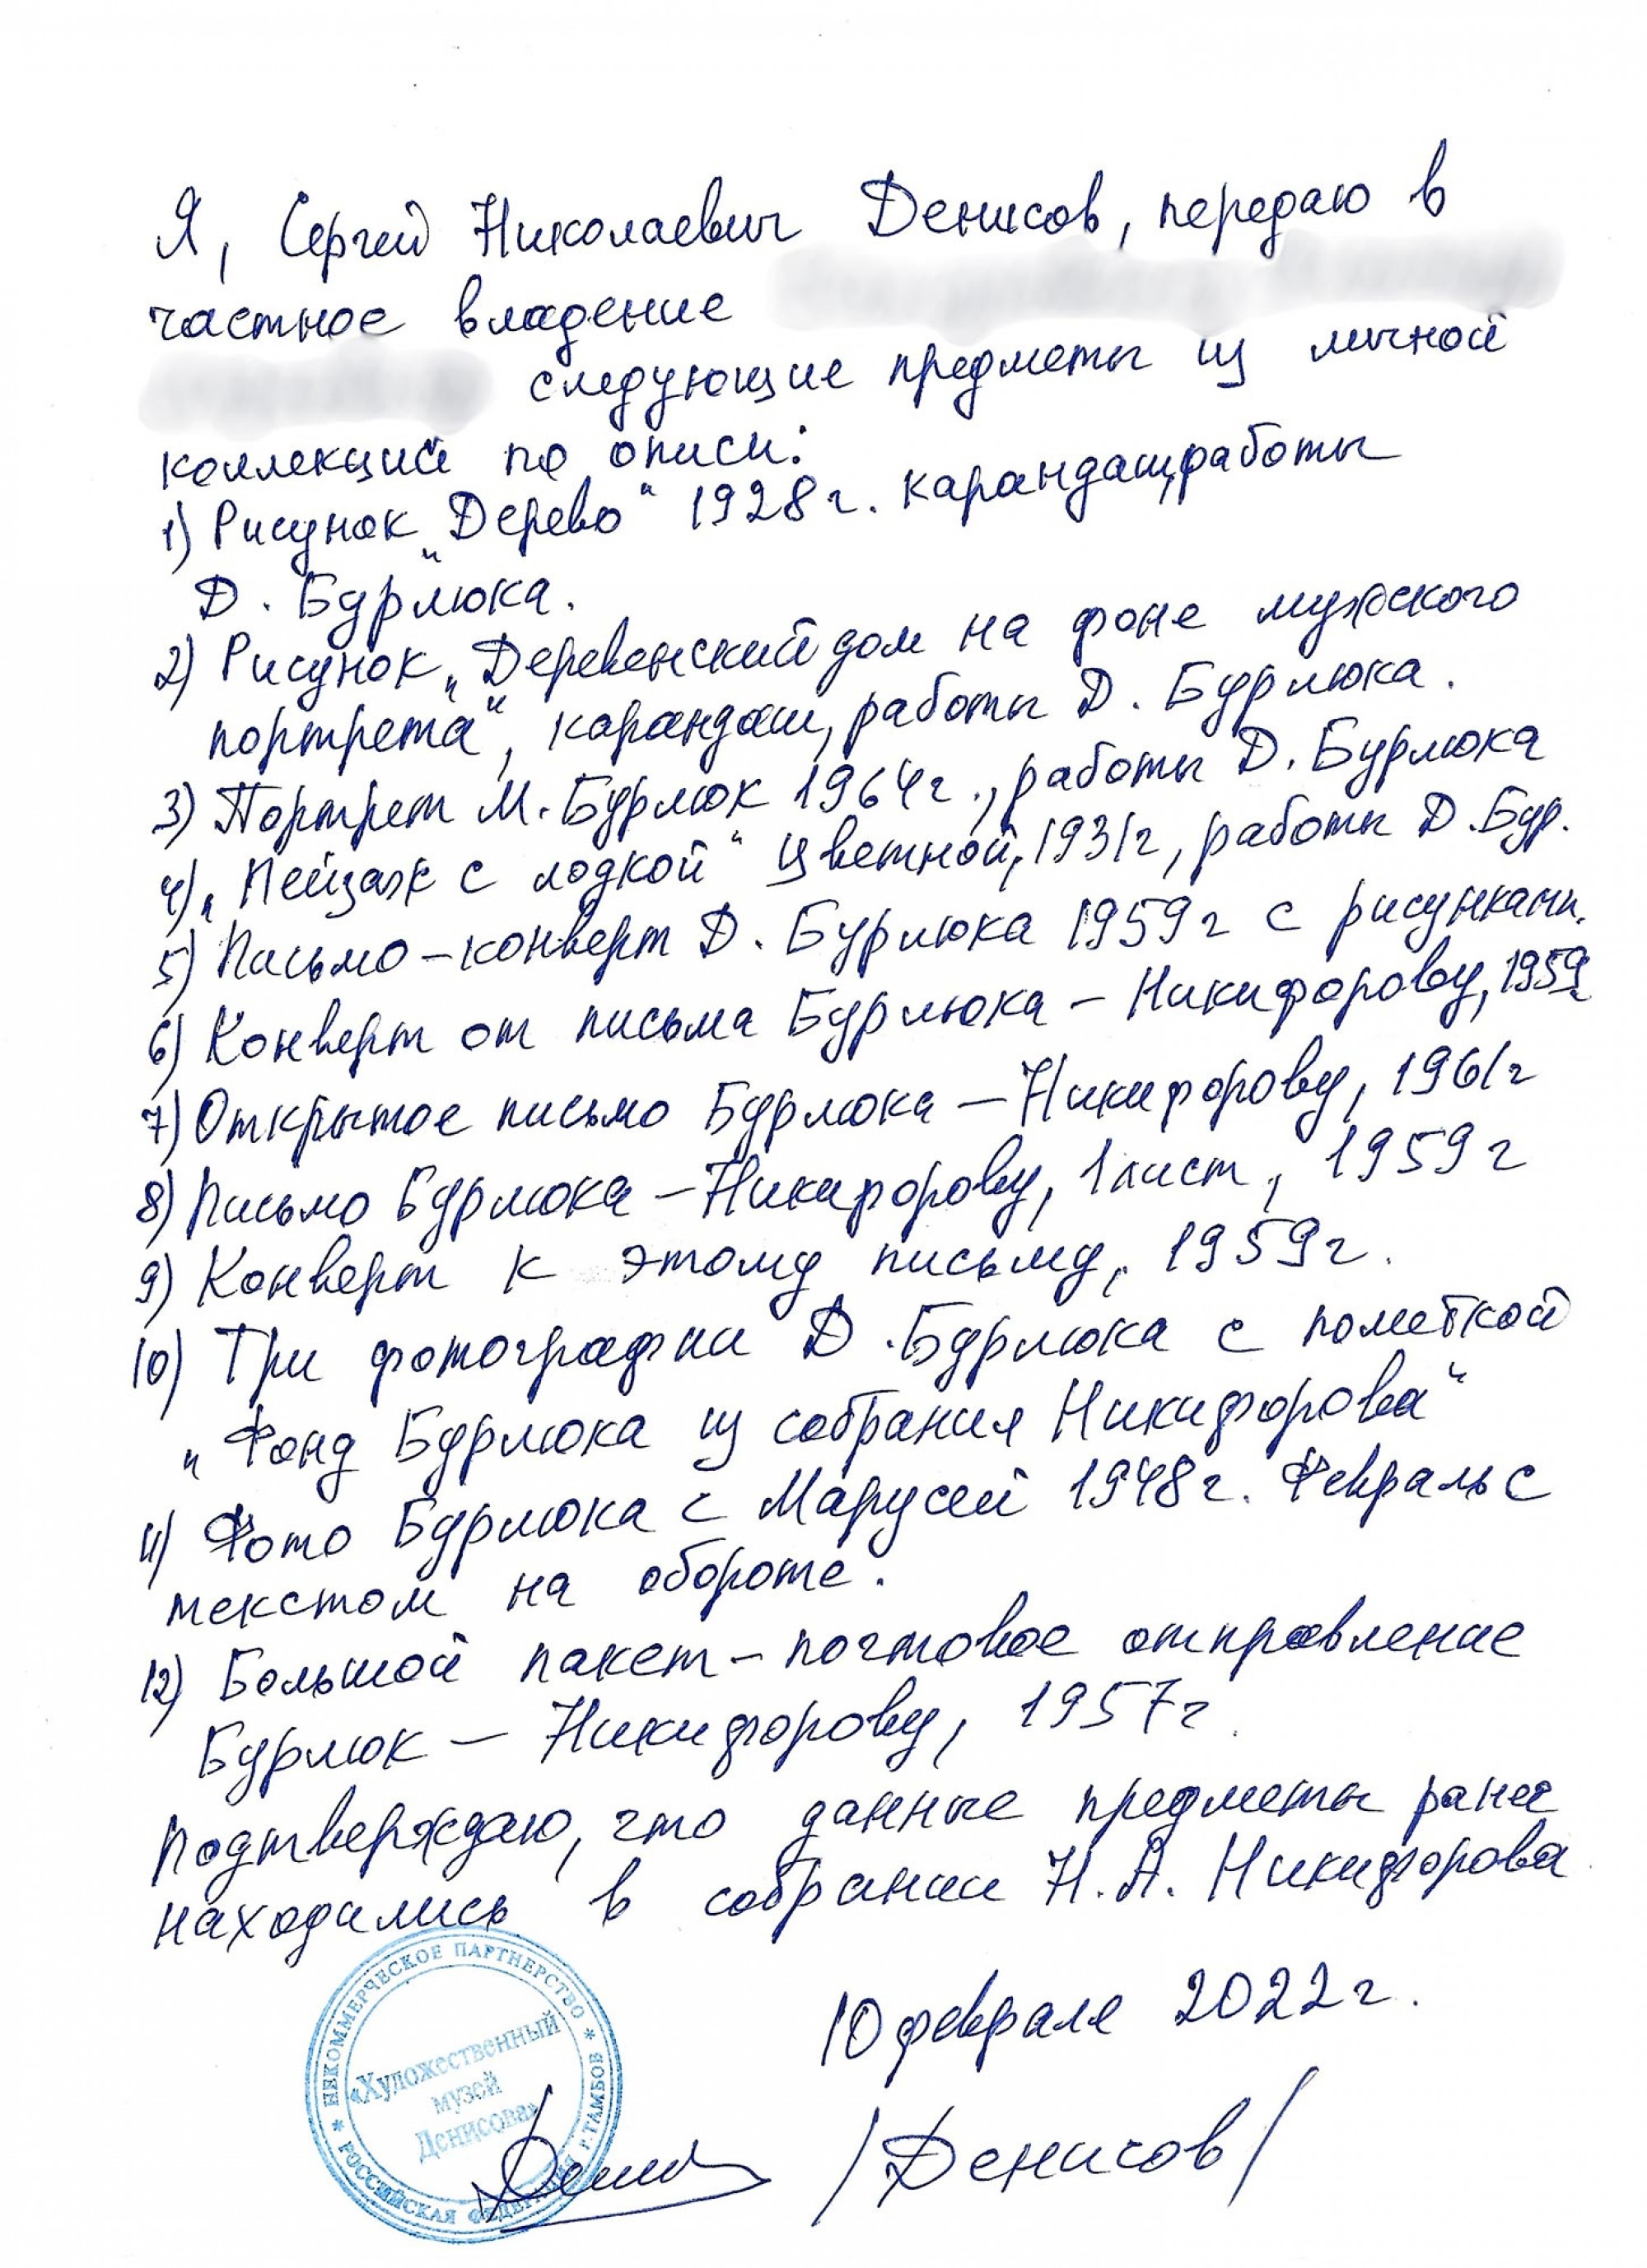 Я, Сергей Николаевич Денисов, передаю в
частное владение
следующие предметы из личной
коллекций по описи:
1) Рисунок „Дерево“ 1928г. карандаш, работы
Д. Бурлюка.
2) Рисунок „Деревенский дом на фоне мужского
портрета“, карандаш, работы Д. Бурлюка.
3) Портрет М. Бурлюк 1964г., работы Д. Бурлюка
4) „Пейзаж с лодкой“ цветной, 1931г, работы Д. Бур.
5) Письмо-конверт Д. Бурлюка 1959г с рисунками.
6) Конверт от письма Бурлюка – Никифорову, 1959г
7) Открытое письмо Бурлюка – Никифорову, 1961г
8) Письмо Бурлюка – Никифорову, 1 лист, 1959г
9) Конверт к этому письму, 1959г.
10) Три фотографии Д. Бурлюка с пометкой
„Фонд Бурлюка из собрания Никифорова“
11) Фото Бурлюка с Марусей 1948г. Февраль с
текстом на обороте.
12) Большой пакет – почтовое отправление
Бурлюк – Никифорову, 1957г.
Подтверждаю, что данные предметы ранее
находились в собрании Н. А. Никифорова
10 февраля 2022г.
/Денисов/
* НЕКОММЕРЧЕСКОЕ ПАРТНЕРСТВО * Г. ТАМБОВ
РОССИЙСКАЯ ФЕДЕРАЦИЯ
«Художественный
музей
Денисова»